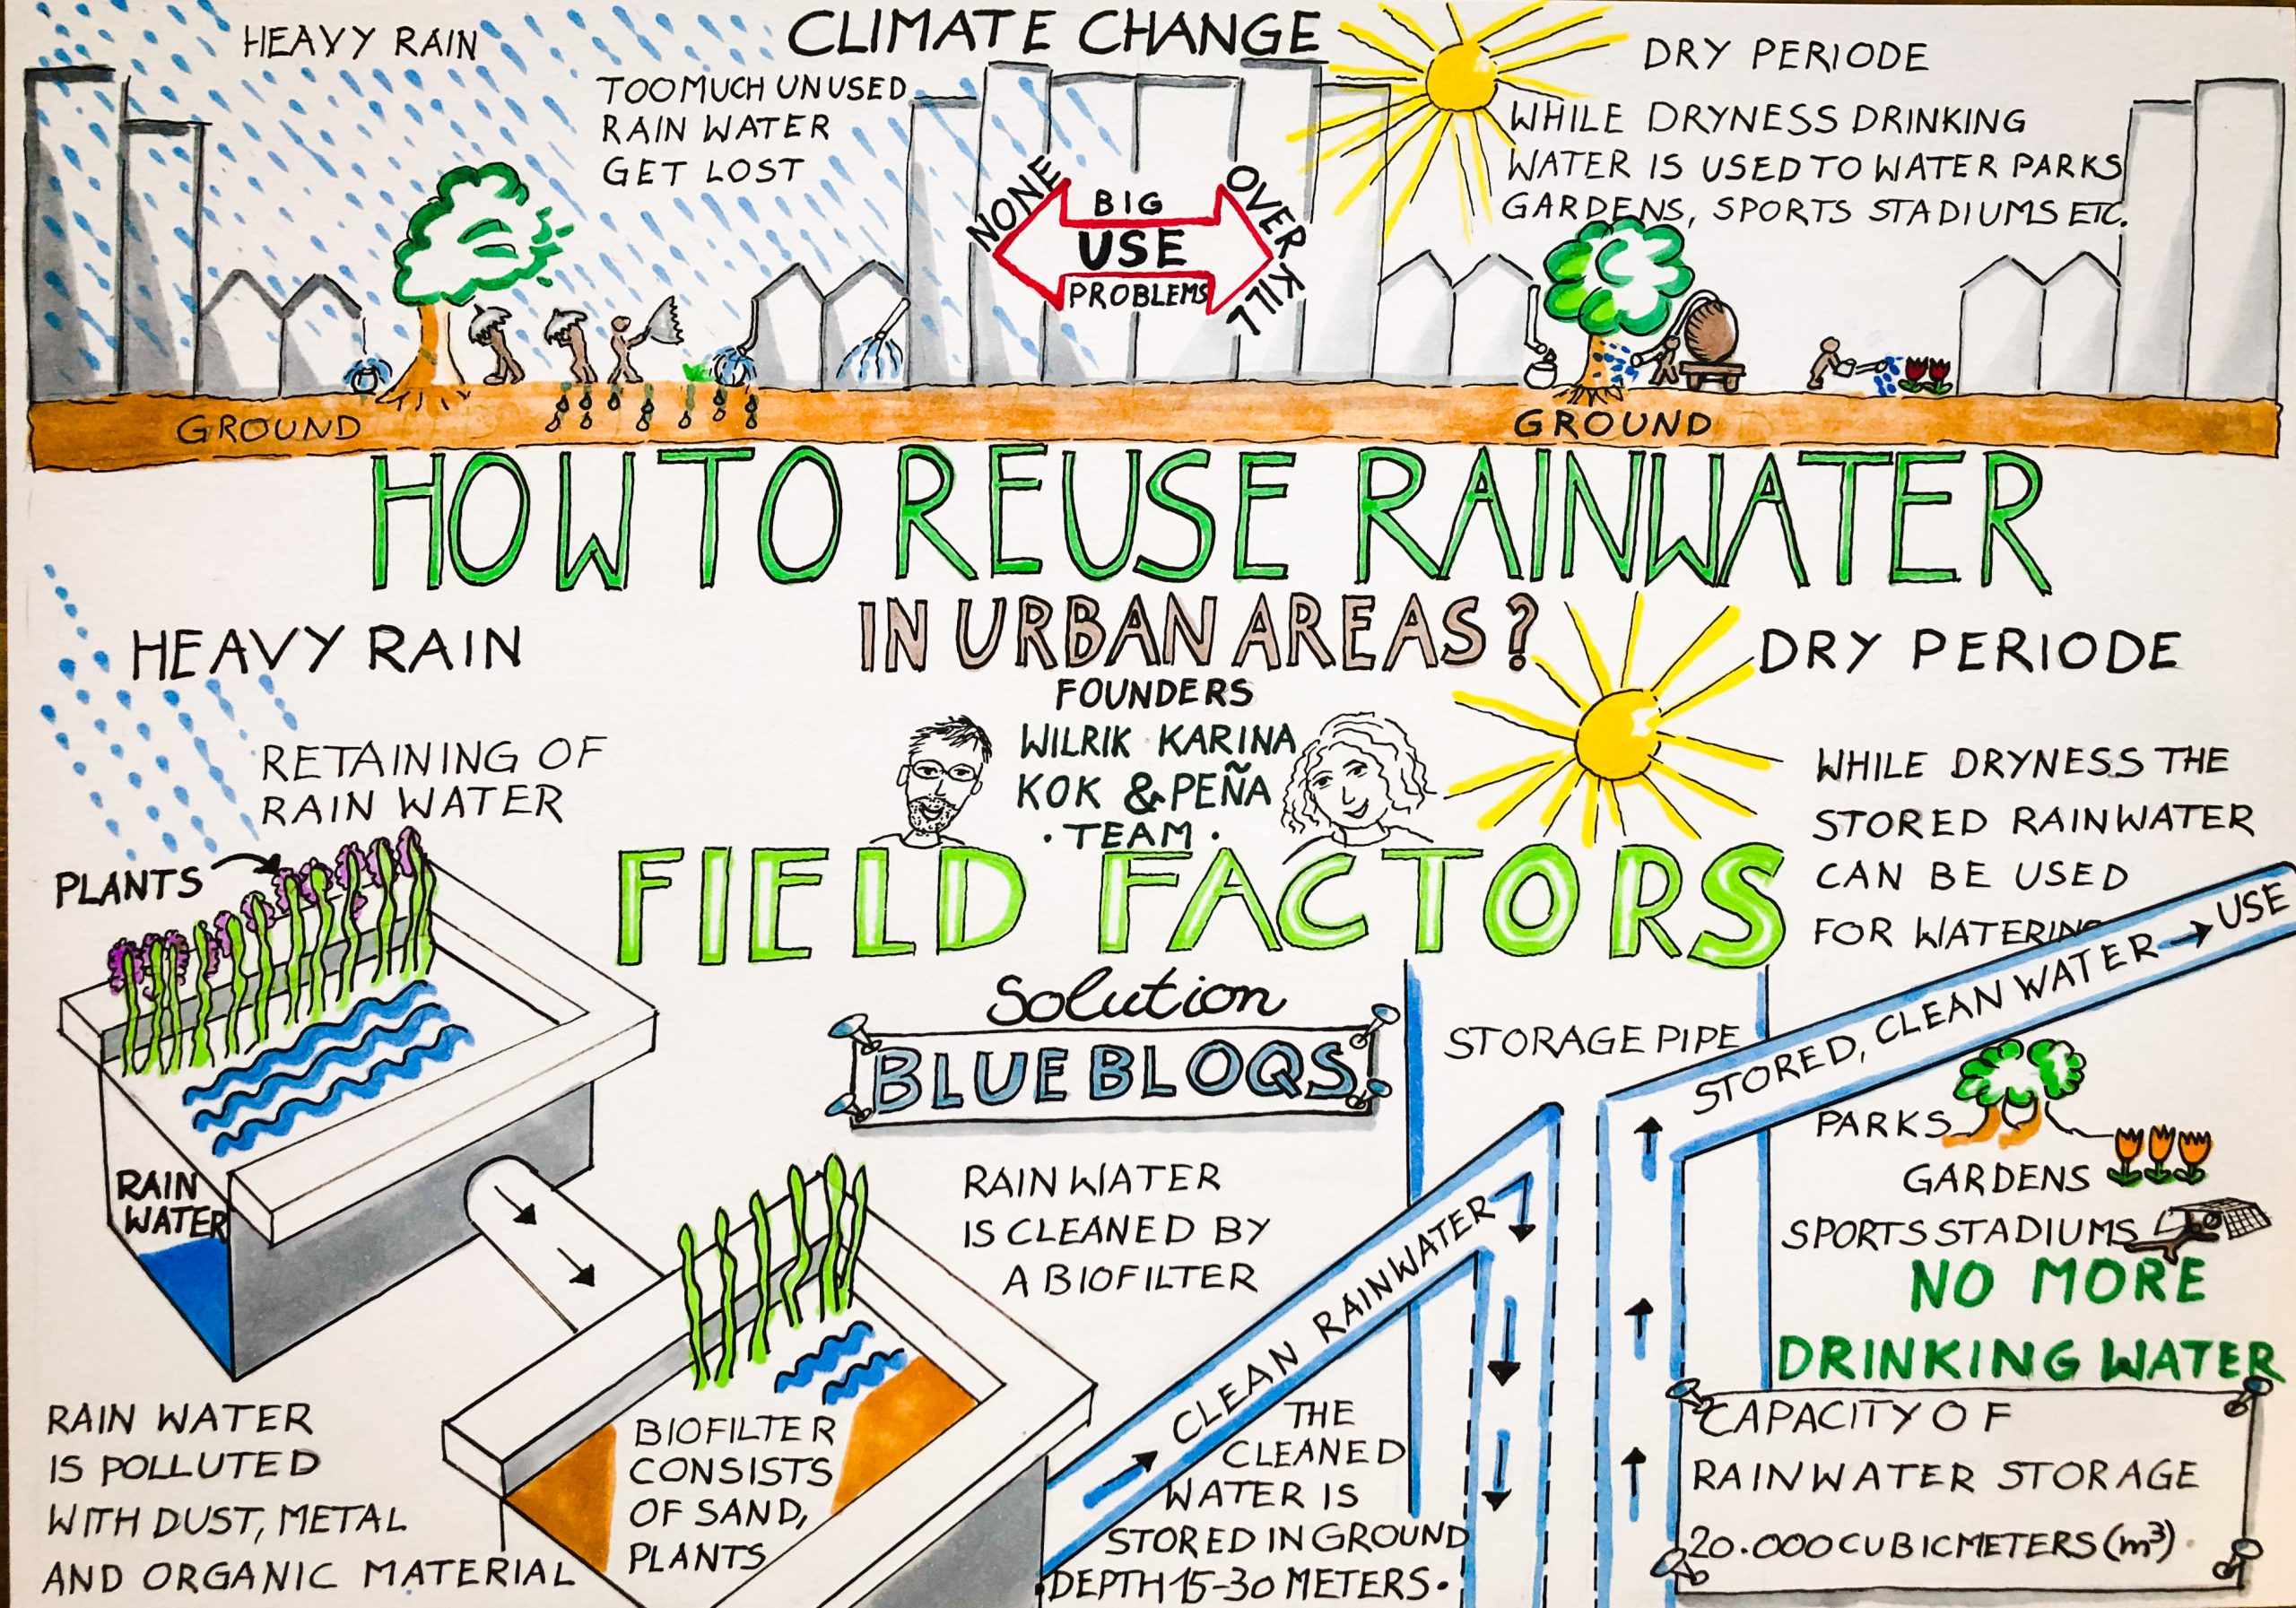 CLIMATE CHANGE
HEAVY RAIN
TOO MUCH UNUSED
RAIN WATER
GET LOST
NONE
BIG
USE
PROBLEMS
OVER
KILL
DRY PERIODE
WHILE DRYNESS DRINKING
WATER IS USED TO WATER PARKS
GARDENS, SPORTS STADIUMS ETC.
GROUND
GROUND
HOW TO REUSE RAINWATER
IN URBAN AREAS?
HEAVY RAIN
RETAINING OF
RAIN WATER
PLANTS
FOUNDERS
WILRIK KARINA
KOK & PEÑA
· TEAM ·
FIELD FACTORS
Solution
BLUEBLOQS
DRY PERIODE
WHILE DRYNESS THE
STORED RAINWATER
CAN BE USED
FOR WATERING
STORAGE PIPE
STORED, CLEAN WATER → USE
PARKS
GARDENS
SPORTS STADIUMS
NO MORE
DRINKING WATER
RAIN
WATER
RAIN WATER
IS POLLUTED
WITH DUST, METAL
AND ORGANIC MATERIAL
BIOFILTER
CONSISTS
OF SAND,
PLANTS
RAIN WATER
IS CLEANED BY
A BIOFILTER
CLEAN RAINWATER
THE
CLEANED
WATER IS
STORED IN GROUND
DEPTH 15-30 METERS.
CAPACITY OF
RAINWATER STORAGE
20.000 CUBICMETERS (m³)